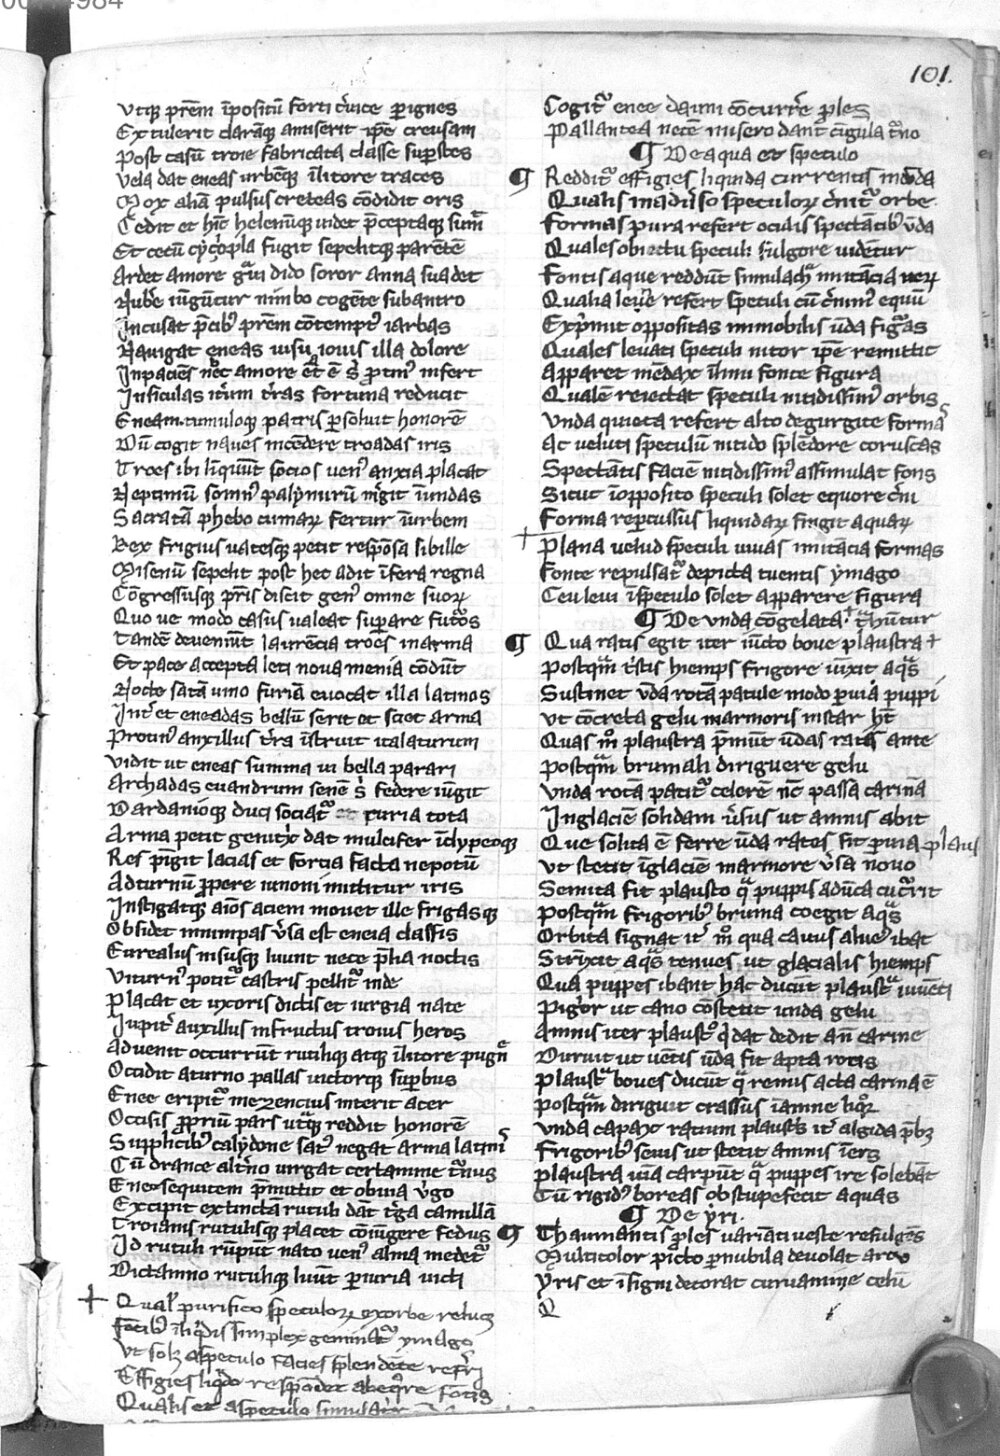 101.
Vtq; prēm īpositū forti c̄uice p ignes
Extulerit claramq; amiserit ip̄e creusam
Post casū troie fabricata classe supstes
Vela dat eneas urbēq; ī litore traces
Mox aliā pulsus creteas cōdidit oris
Cedit et hīc helenūq; uidet p̄ceptaq; sumit
Et cecū fugit sepelitq; parētē
Ardet amore gͣui dido soror anna suadet
Nubē iūgūtur nimbo cogēte sub antro
Incusat p̄cib; prēm cōtempt9 iarbas
Nauigat eneas iussu iouis illa dolore
Inpaciēs nēc amore
In siculas it̄um t̄ras fortuna reducit
Eneam tumuloq; patris psoluit honorē
Dū cogit naues incēdere troadas iris
Troes ibi līquūt socios uen9 anxia placat
Neptunū somn9 palynurū m̄git ī undas
Sacratā phebo cumaꝝ fertur ī urbem
Rex frigius uatesq; petit respōsa sibille
Misenū sepelit post hec adit īfera regna
Cōgressusq; pr̄is discit gen9 omne suoꝝ
Quo ue modo casus ualeat supare fut̄os
Tandē deueniūt laurēcia troēs in arma
Et pace accepta leti noua menia cōdūt
Nocte satā uino furiā euocat illa latinos
Int̄ et eneadas bellū serit et sciet arma
Protin9 auxillus t̄ra īstruit itala turnū
Vidit ut eneas summa ui bella parari
Archadas euandrum senē s; federe iūgit
Dardaniōq; duci sociat᷑ et turia tota
Arma petit genit̄x dat mulcifer ī clypeoq;
Res pīgit lacias et fortia facta nepotū
Ad turnū ppere iunoni mittitur iris
Instigatq; aīos aciem mouet ille frigasq;
Obsidet in ūsa est eneia classis
Eurealus nisusq; luunt nece p̄lia noctis
Viturn9 potit᷑ castris pellit᷑ inde
Placat et uxoris dictis et iurgia nate
Iupit̄ auxillus infructus troius heros
Aduenit occurrūt rutiliq; atq; ī litore pugnā
Occidit a turno pallas uictorq; supbus
Enee eripit᷑ mezencius interit acer
Occisis ppriū pars ut̄q; reddit honorē
Supplicib; calydone sat9 negat arma latin̄
Cū drance alt̄no iurgat certamine t̄nus
Enee sequitem p̄mittit et obuia ūgo
Excipit extinctā rutuli dat t̄ga camilla
Troianis rutulisq; placet cōiūgere fedus
Id rutuli rūpūt nato uen9 alma medet᷑
Dictamno rutuliq; luūt piuria uicti
+ Qual purifico speculoꝝ ex orbe relucz
Fōtib; ī līq̄dis simplex geminat᷑ ymago
Vt solz a speculo facies splendēte referri
Effigies liq̄do respōdet ab eq̄re fōtis
Qualis et a speculo
Cogit᷑ enee dauni cōcurrē ples
Pallantea necē misero dant cīgula t̄no
¶ De aqua et speculo
¶ Reddit᷑ effigies liquida currentis in ūda
Qualis in adūso speculoꝝ c̄nit᷑ orbe
Formas pura refert oculis spectātib; ūda
Quales obiectu speculi fulgore uidētur
Fontis aque reddūt simulachͣ imitācia ueꝝ
Qualia leue refert speculi cū c̄nim9 equū
Exp̄mit oppositas immobilis ūda figͣas
Quales leuati speculi nitor ip̄e remittit
Apparet mēdax ī limo fonte figura
Qualē reiectat speculi nitidissim9 orbis
Vnda quieta refert alto de gurgite formā
Ac veluti speculū nitido splēdore coruscās
Spectātis faciē nitidissim9 assimulat fons
Sicut ī opposito speculi solet equore c̄ni
Forma repcussus liquidaꝝ fingit aquaꝝ
+ Plana velud speculi uiuas imitācia formas
Fonte repulsat᷑ depicta tuentis ymago
Ceu leui ī speculo solet apparere figura
¶ De vnda cōgelata +
¶ Qua ratis egit iter iūcto boue plaustra +
Postqͣm t̄stis hiemps frigore iūxit aqͣs
Sustinet ūda rotā patule modo puia puppi
Vt cōcreta gelu marmoris instar hēt
Quas m̊ plaustra p̄mūt ūdas ratis ante
Postqͣm brumali diriguere gelu
Vnda rotā patit᷑ celerē nē passa carinā
In glaciem solidam ūsus ut amnis abit
Que solita ē ferre ūda rates fit puia plaus
Vt stetit ī glaciē marmore ūsa nouo
Semita fit plausto qͣ puppis adūca cucūrit
Postqͣm frigorib; bruma coegit aqͣs
Orbita signat it̄ m̊ qua cauus alue9 ibat
Strīxit aqͣs tenues ut glacialis hiemps
Qua puppes ibant hac ducūt plaustͣ iuuēci
Piḡor ut cano cōstetit unda gelu
Amnis iter plaust̊ q̄dat dedit an̄ carine
Duruit ut uētis ūda fit apta rotis
Plaustͣ boues ducūt qͣ remis acta carina ē
Postqͣm diriguit crassus ī amne liq̊r
Vnda capax ratium plaust̄s it̄ algida p̄bz
Frigorib; seuis ut stetit amnis iers
Plaustra uiā carpūt qͣ puppes ire solebāt
Cū rigid9 boreas obstupefecit aquas
¶ De yri.
¶ Thaumantis ples uariāti ueste refulgēs
Multicolor picto p nubila deuolat arcu
Yris et īsigni decorat curuamine celū
Q